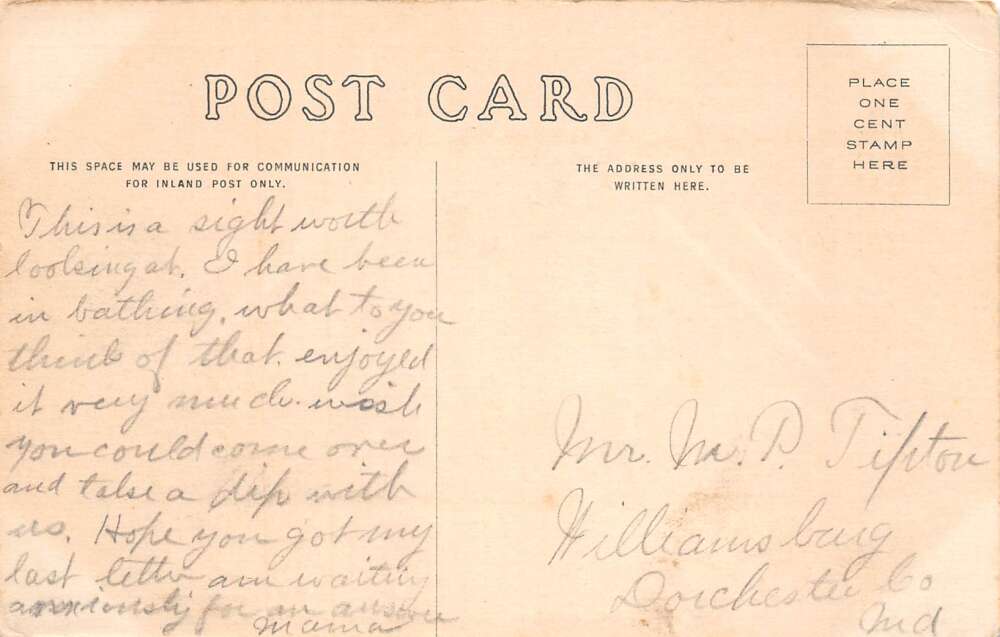 POST CARD
PLACE
ONE
CENT
STAMP
HERE
THIS SPACE MAY BE USED FOR COMMUNICATION
FOR INLAND POST ONLY.
THE ADDRESS ONLY TO BE
WRITTEN HERE.
This is a sight worth
looking at. I have been
in bathing. what to you
think of that. enjoyed
it very much. wish
you could come over
and take a dip with
us. Hope you got my
last letter am waiting
anxiously for an answer
Mama
Mr. M. P. Tipton
Williamsburg
Dorchester Co
Md